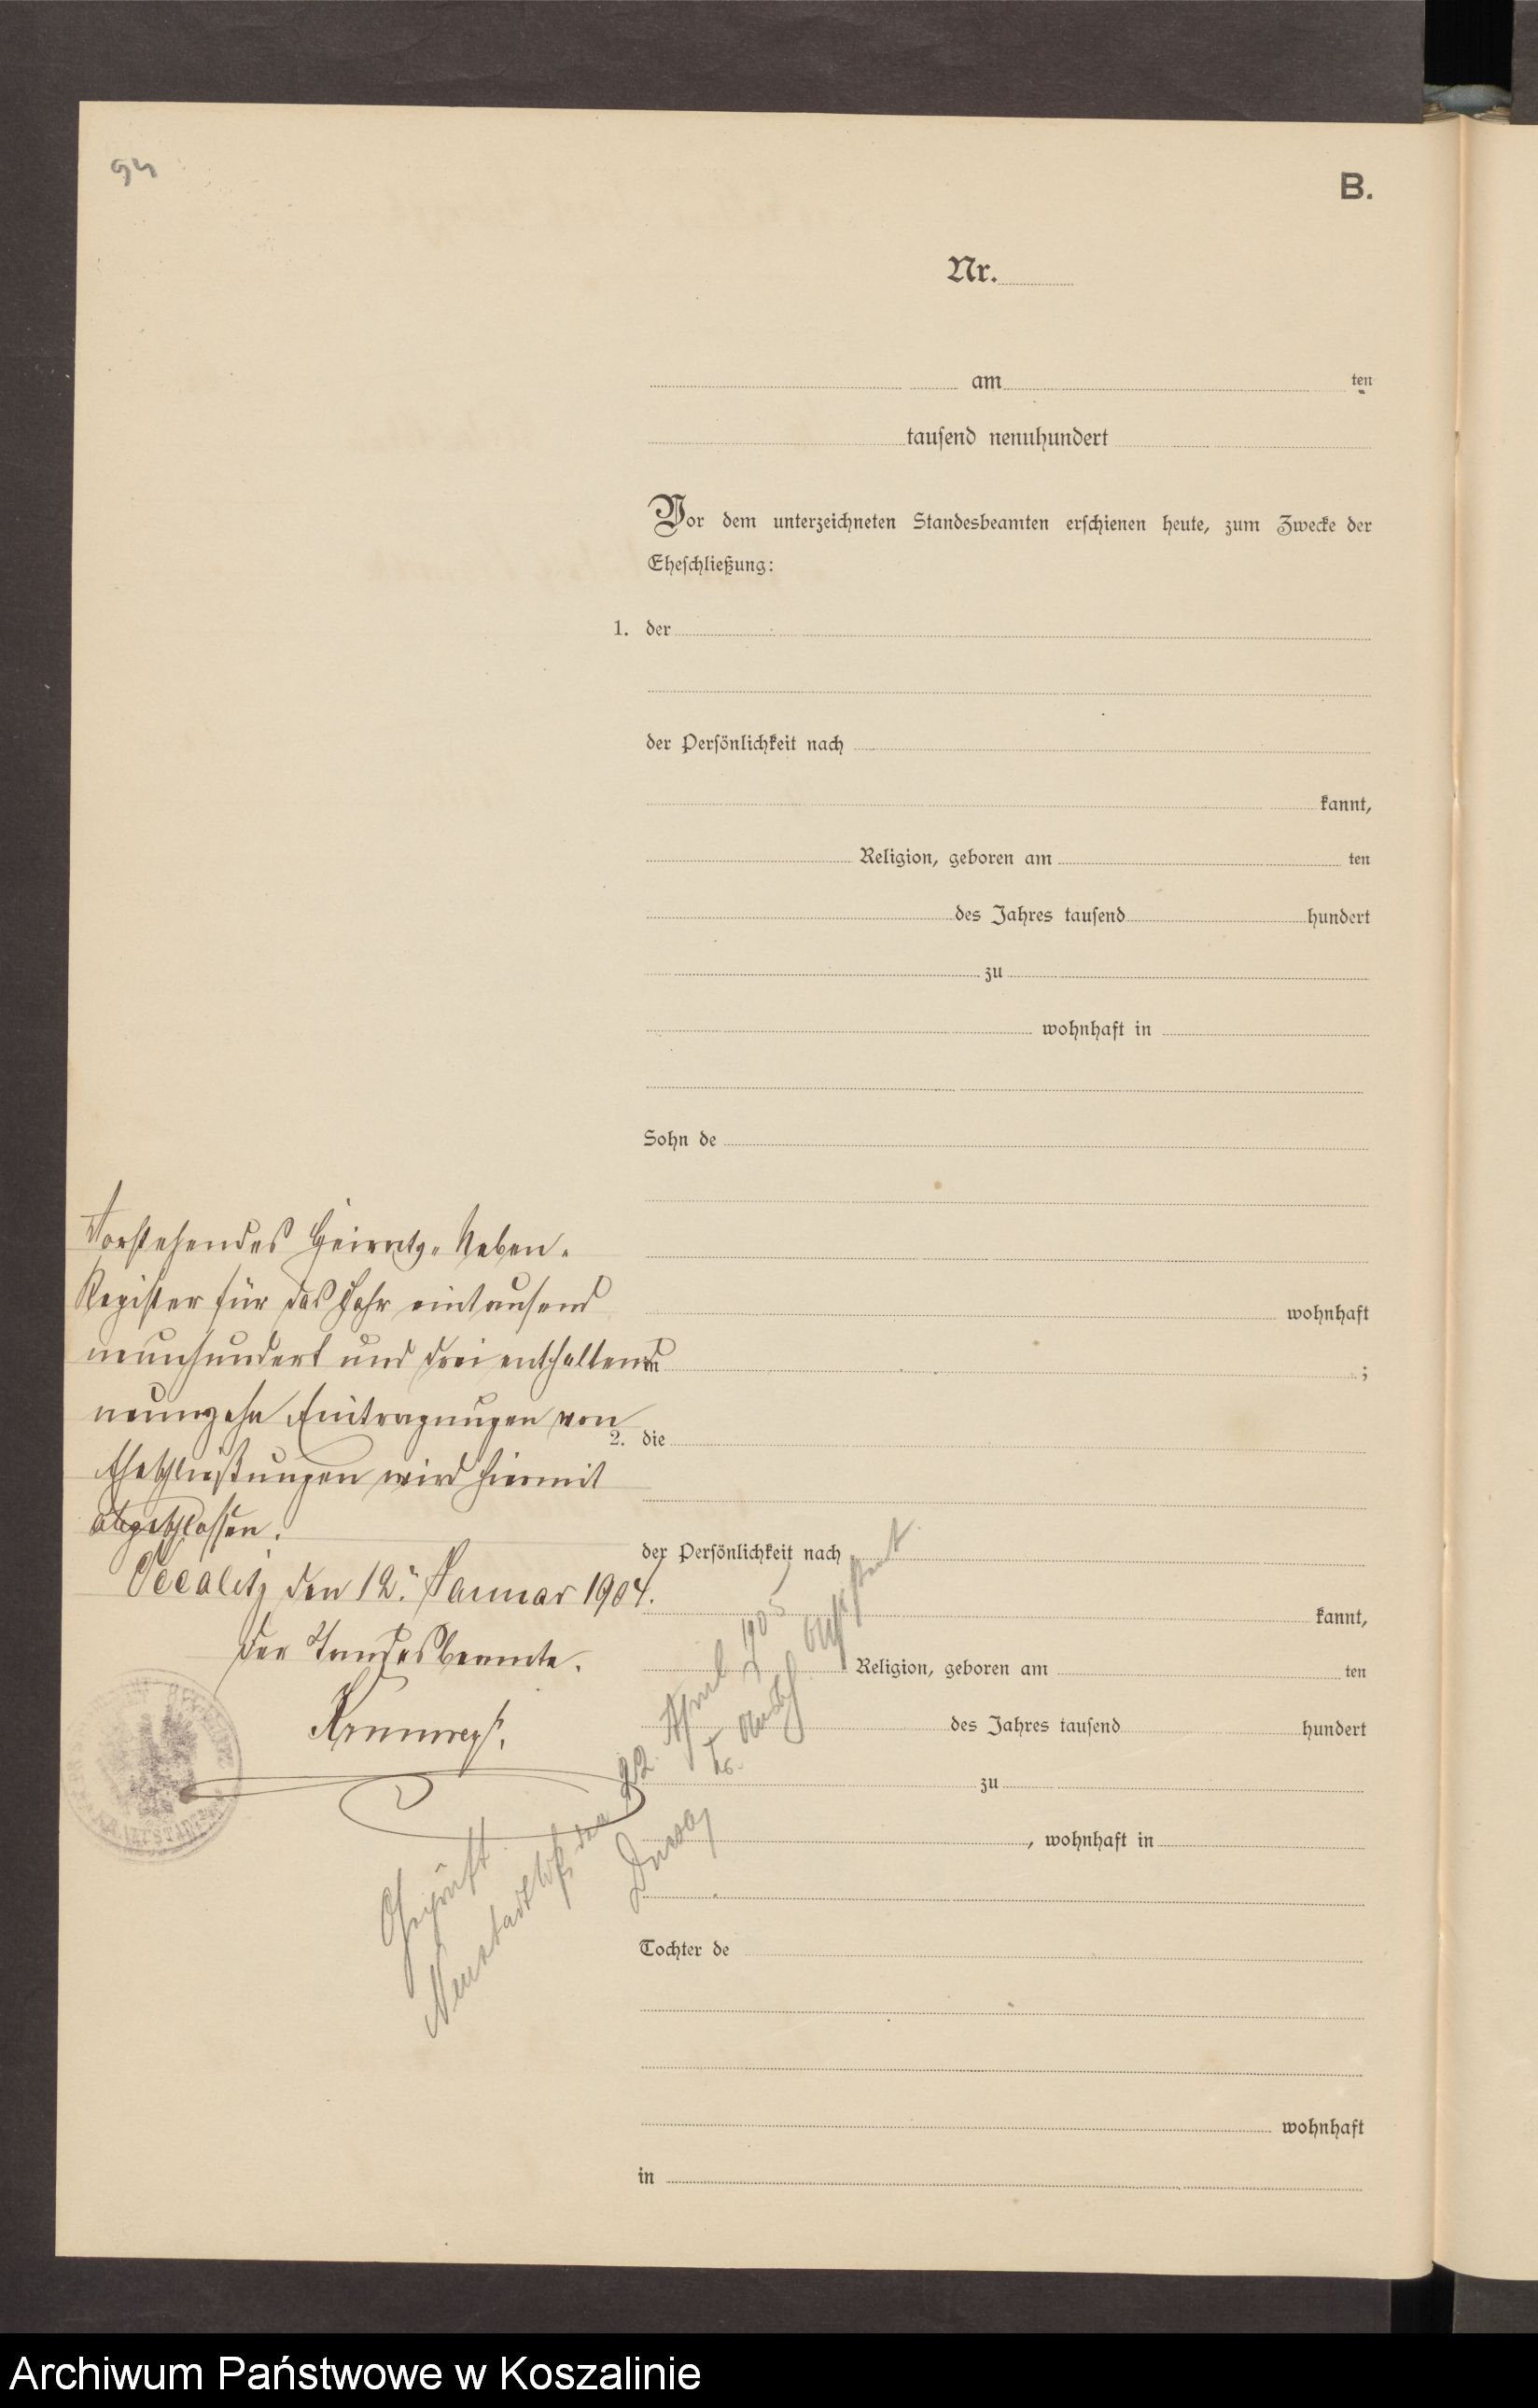 94
B.
Nr.
am ten
tausend nenuhundert
Vor dem unterzeichneten Standesbeamten erschienen heute, zum Zwecke der
Eheschließung:
1. der
der Persönlichkeit nach
kannt,
Religion, geboren am ten
des Jahres tausend hundert
zu
wohnhaft in
Sohn de
wohnhaft
in ;
2. die
der Persönlichkeit nach
kannt,
Religion, geboren am ten
des Jahres tausend hundert
zu
, wohnhaft in
Tochter de
wohnhaft
in
Vorstehendes Heirats-Neben-
Register für das Jahr eintausend
neunhundert und drei enthaltend
neunzehn Eintragungen von
Eheschließungen wird hiermit
abgeschlossen.
den 12. Januar 1904.
Der Standesbeamte.
Geprüft
den 22. April 1905
Archiwum Państwowe w Koszalinie